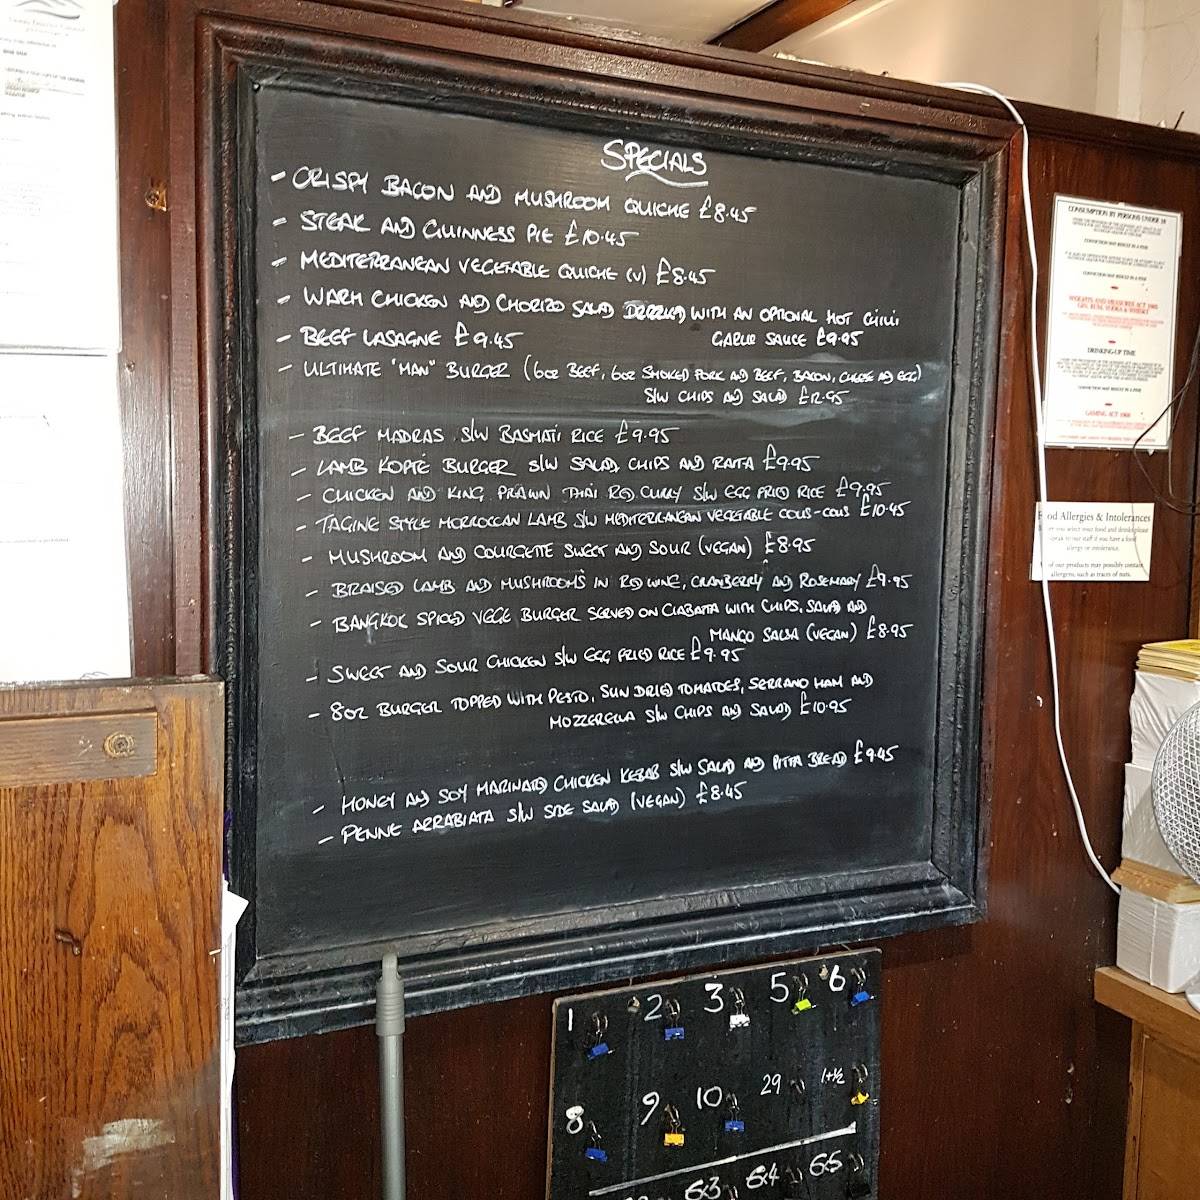 SPECIALS
- CRISPY BACON AND MUSHROOM QUICHE £8.45
- STEAK AND GUINNESS PIE £10.45
- MEDITERRANEAN VEGETABLE QUICHE (V) £8.45
- WARM CHICKEN AND CHORIZO SALAD DRIZZLED WITH AN OPTIONAL HOT CHILLI
GARLIC SAUCE £9.95
- BEEF LASAGNE £9.45
- ULTIMATE "MAN" BURGER (6oz BEEF, 6oz SMOKED PORK AND BEEF, BACON, CHEESE AND EGG)
S/W CHIPS AND SALAD £12.95
- BEEF MADRAS S/W BASMATI RICE £9.95
- LAMB KOFTE BURGER S/W SALAD, CHIPS AND RAITA £9.95
- CHICKEN AND KING PRAWN THAI RED CURRY S/W EGG FRIED RICE £9.95
- TAGINE STYLE MORROCCAN LAMB S/W MEDITERRANEAN VEGETABLE COUS-COUS £10.45
- MUSHROOM AND COURGETTE SWEET AND SOUR (VEGAN) £8.95
- BRAISED LAMB AND MUSHROOMS IN RED WINE, CRANBERRY AND ROSEMARY £9.95
- BANGKOK SPICED VEGE BURGER SERVED ON CIABATA WITH CHIPS, SALAD AND
MANGO SALSA (VEGAN) £8.95
- SWEET AND SOUR CHICKEN S/W EGG FRIED RICE £9.95
- 8oz BURGER TOPPED WITH PESTO, SUN DRIED TOMATOES, SERRANO HAM AND
MOZZERELLA S/W CHIPS AND SALAD £10.95
- HONEY AND SOY MARINATED CHICKEN KEBAB S/W SALAD AND PITTA BREAD £9.45
- PENNE ARRABIATA S/W SIDE SALAD (VEGAN) £8.45
CONSUMPTION BY PERSONS UNDER 18
CONVICTION MAY RESULT IN A FINE
CONVICTION MAY RESULT IN A FINE
WEIGHTS AND MEASURES ACT 1985
GIN, RUM, VODKA & WHISKY
DRINKING-UP TIME
CONVICTION MAY RESULT IN A FINE
GAMING ACT 1968
od Allergies & Intolerances
you select your food and drinks please
speak to our staff if you have a food
allergy or intolerance.
of our products may possibly contain
allergens, such as traces of nuts.
1 2 3 5 6
8 9 10 29 1+½
63 64 65